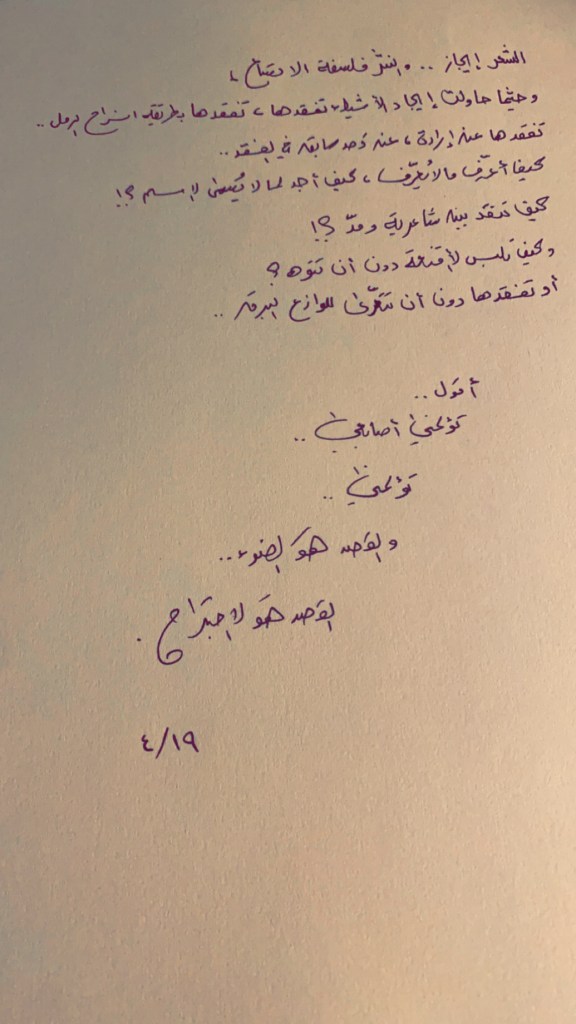 الشعر إيجاز .. والنثر فلسفة الاقتناع ،
وحيثما حاولت إيجاد الأشياء تفقدها ، تفقدها بطريقة انزياح الرمل ..
تفقدها عن إرادة ، عن قصد سابق في الفقد ..
كيف أعرّف ما لا يُعرّف ، كيف أجد لما لا يُعطى لإسم ؟!
كيف تفقد بين شاعرية ومدّ ؟!
وكيف تلبس الأقنعة دون أن تتوه ؟
أو تفقدها دون أن تتعرّى للوازع
أقول ..
تؤلمني أصابعي ..
تؤلمني ..
والقصد هو الضوء ..
القصد هو الاجتراح .
٤/١٩